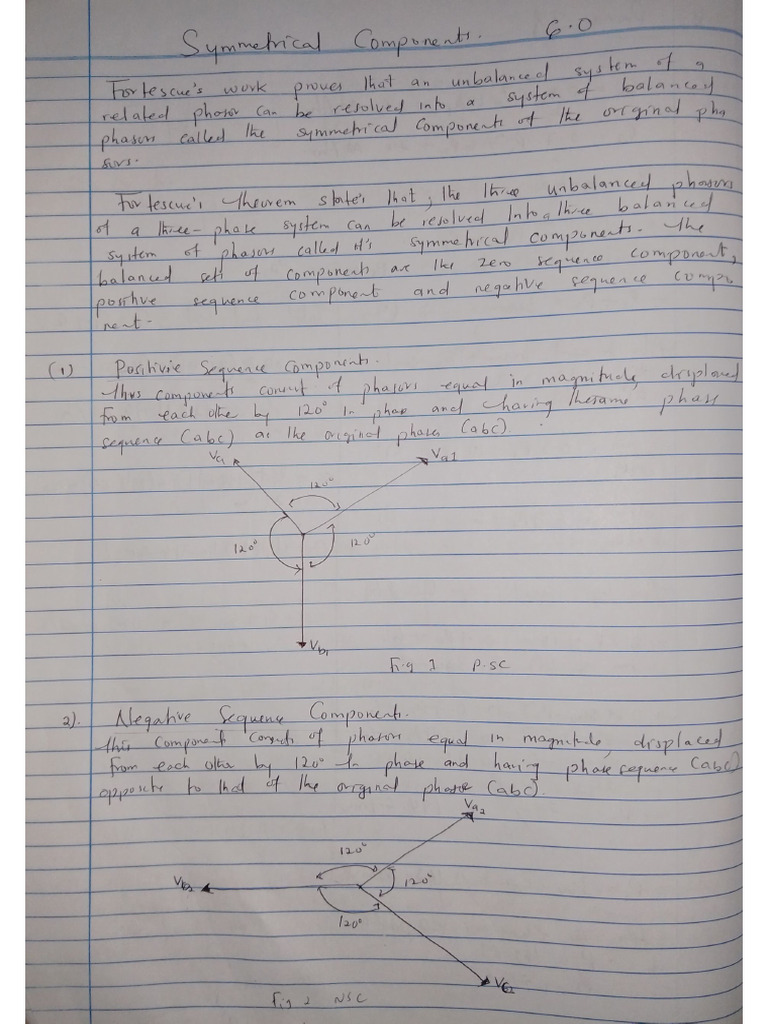 Symmetrical Components. 6.0
Fortescue's work proves that an unbalanced system of g
related phasor can be resolved into a system of balanced
phasors called the symmetrical components of the original pha
sors.
Fortescue's theorem state's that, the three unbalanced phasors
of a three-phase system can be resolved Into a three balanced
system of phasors called it's symmetrical components. The
balanced sets of components are the zero sequence component,
positive sequence component and negative sequence compo
nent.
(1) Positivie Sequence Components.
thus components consist of phasors equal in magnitude, displaced
from each other by 120° In phase and having thesame phase
sequence (abc) as the original phases (abc).
Vc1 Va1
120°
120° 120°
Vb1
Fig 1 P.SC
2). Negative Sequence Components.
this component consists of phasors equal in magnitude, displaced
from each other by 120° In phase and having phase sequence (abc)
opposite to that of the original phasor (abc).
Va2
120°
Vb2 120°
120°
Vc2
Fig 2 NSC